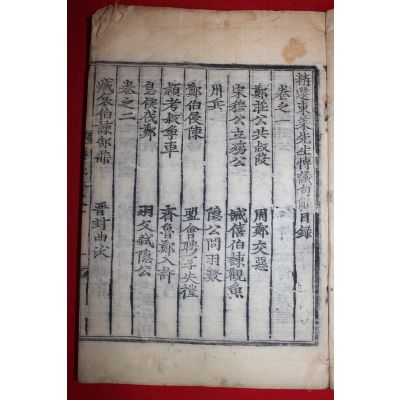 精選東萊先生博議句解目錄
卷之一
鄭莊公共叔段　周鄭交惡
宋穆公立殤公　臧僖伯諫觀魚
用兵　隱公問羽數
鄭伯侵陳　盟會聘享失禮
穎考叔爭車　齊魯鄭入許
息侯伐鄭　羽父弑隱公
卷之二
臧哀伯諫郜鼎　晋封曲沃